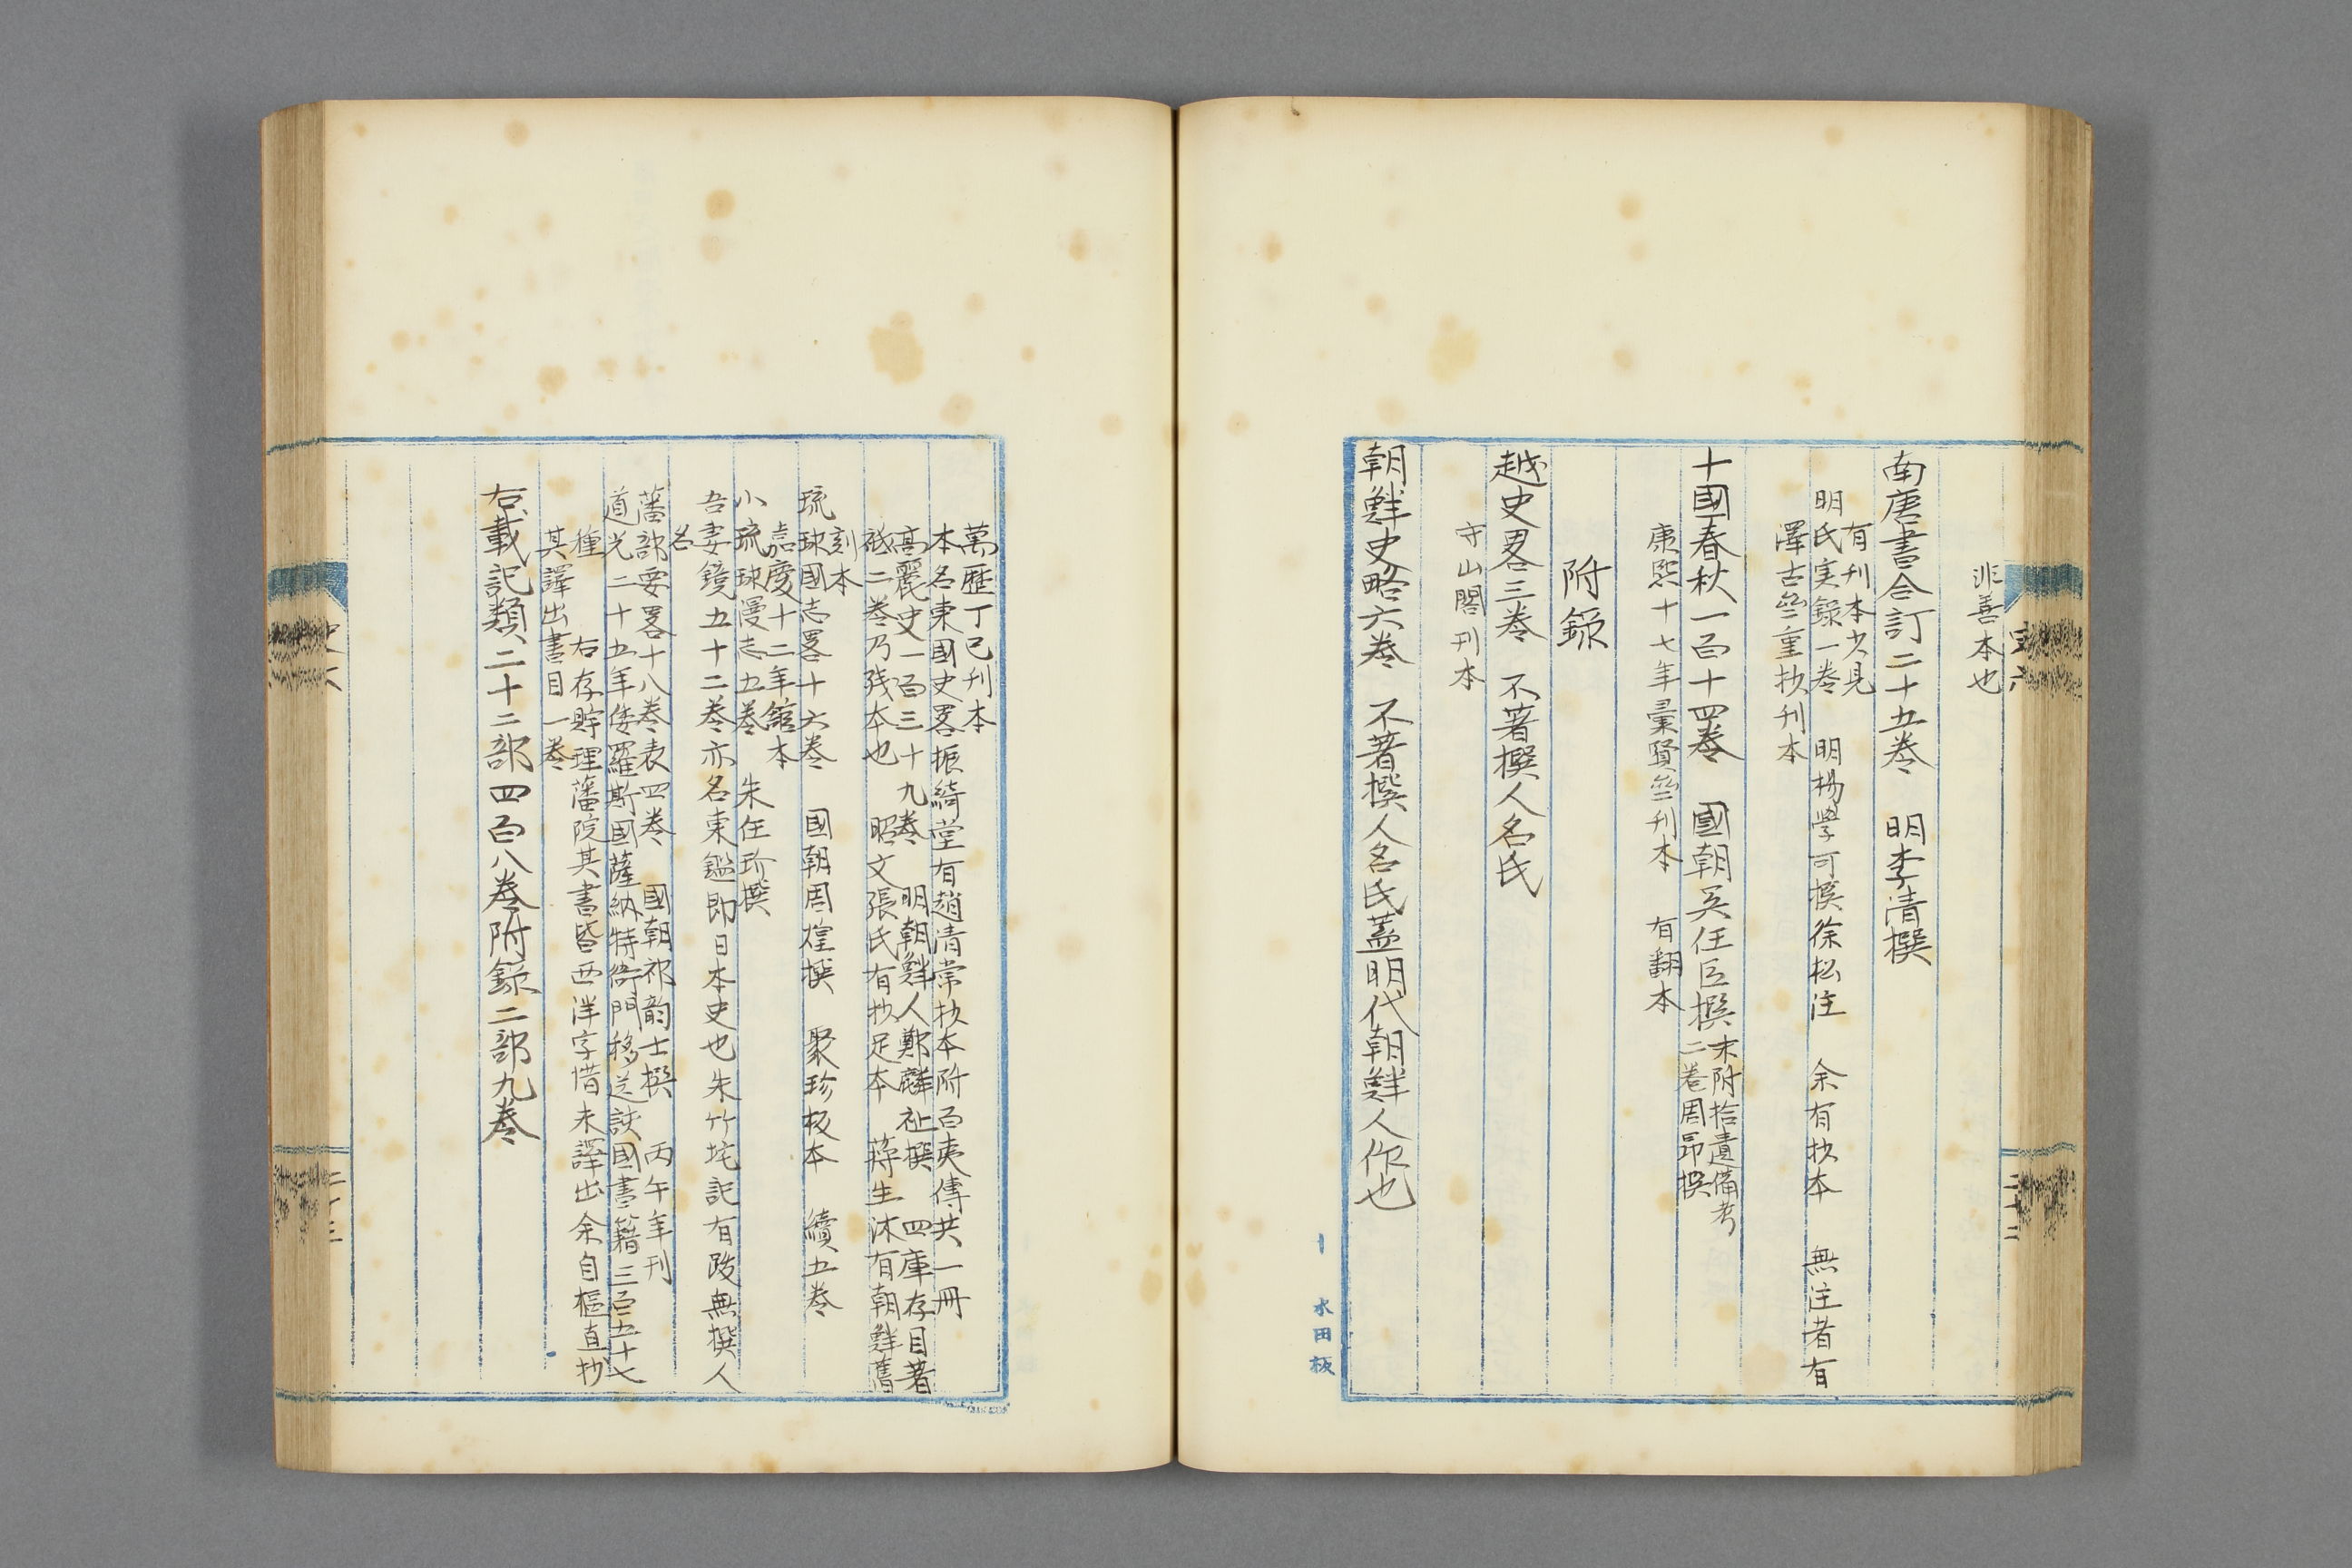 非善本也
南唐書合訂二十五卷　明李清撰
有刊本少見
明氏実錄一卷　明楊學可撰徐松注　余有抄本　無注者有
澤古叅重抄刊本
十國春秋一百十四卷　國朝吴任臣撰末附拾遺備考
二卷周昂撰
康熙十七年彙賢叅刊本　有翻本
附錄
越史畧三卷　不著撰人名氏
守山閣刊本
朝鮮史略六卷　不著撰人名氏蓋明代朝鮮人作也
水田板
萬歷丁巳刊本
本名東國史畧振綺堂有趙清常抄本附百夷傳共一冊
高麗史一百三十九卷　明朝鮮人鄭麟祉撰　四庫存目著
祗二卷乃残本也　昭文張氏有抄足本　蔣生沐有朝鮮舊
刻本
琉球國志畧十六卷　國朝周煌撰　聚珍板本　續五卷
嘉慶十二年館本
小琉球漫志五卷　朱任珍撰
吾妻鏡五十二卷亦名東鑑即日本史也朱竹垞記有跋無撰人
名
藩部要畧十八卷表四卷　國朝祁韵士撰　丙午年刊
道光二十五年俄羅斯國薩納特衙門移送該國書籍三百五十七
種　右存貯理藩院其書皆西洋字惜未譯出余自樞直抄
其譯出書目一卷
右載記類二十二部四百八卷附錄二部九卷